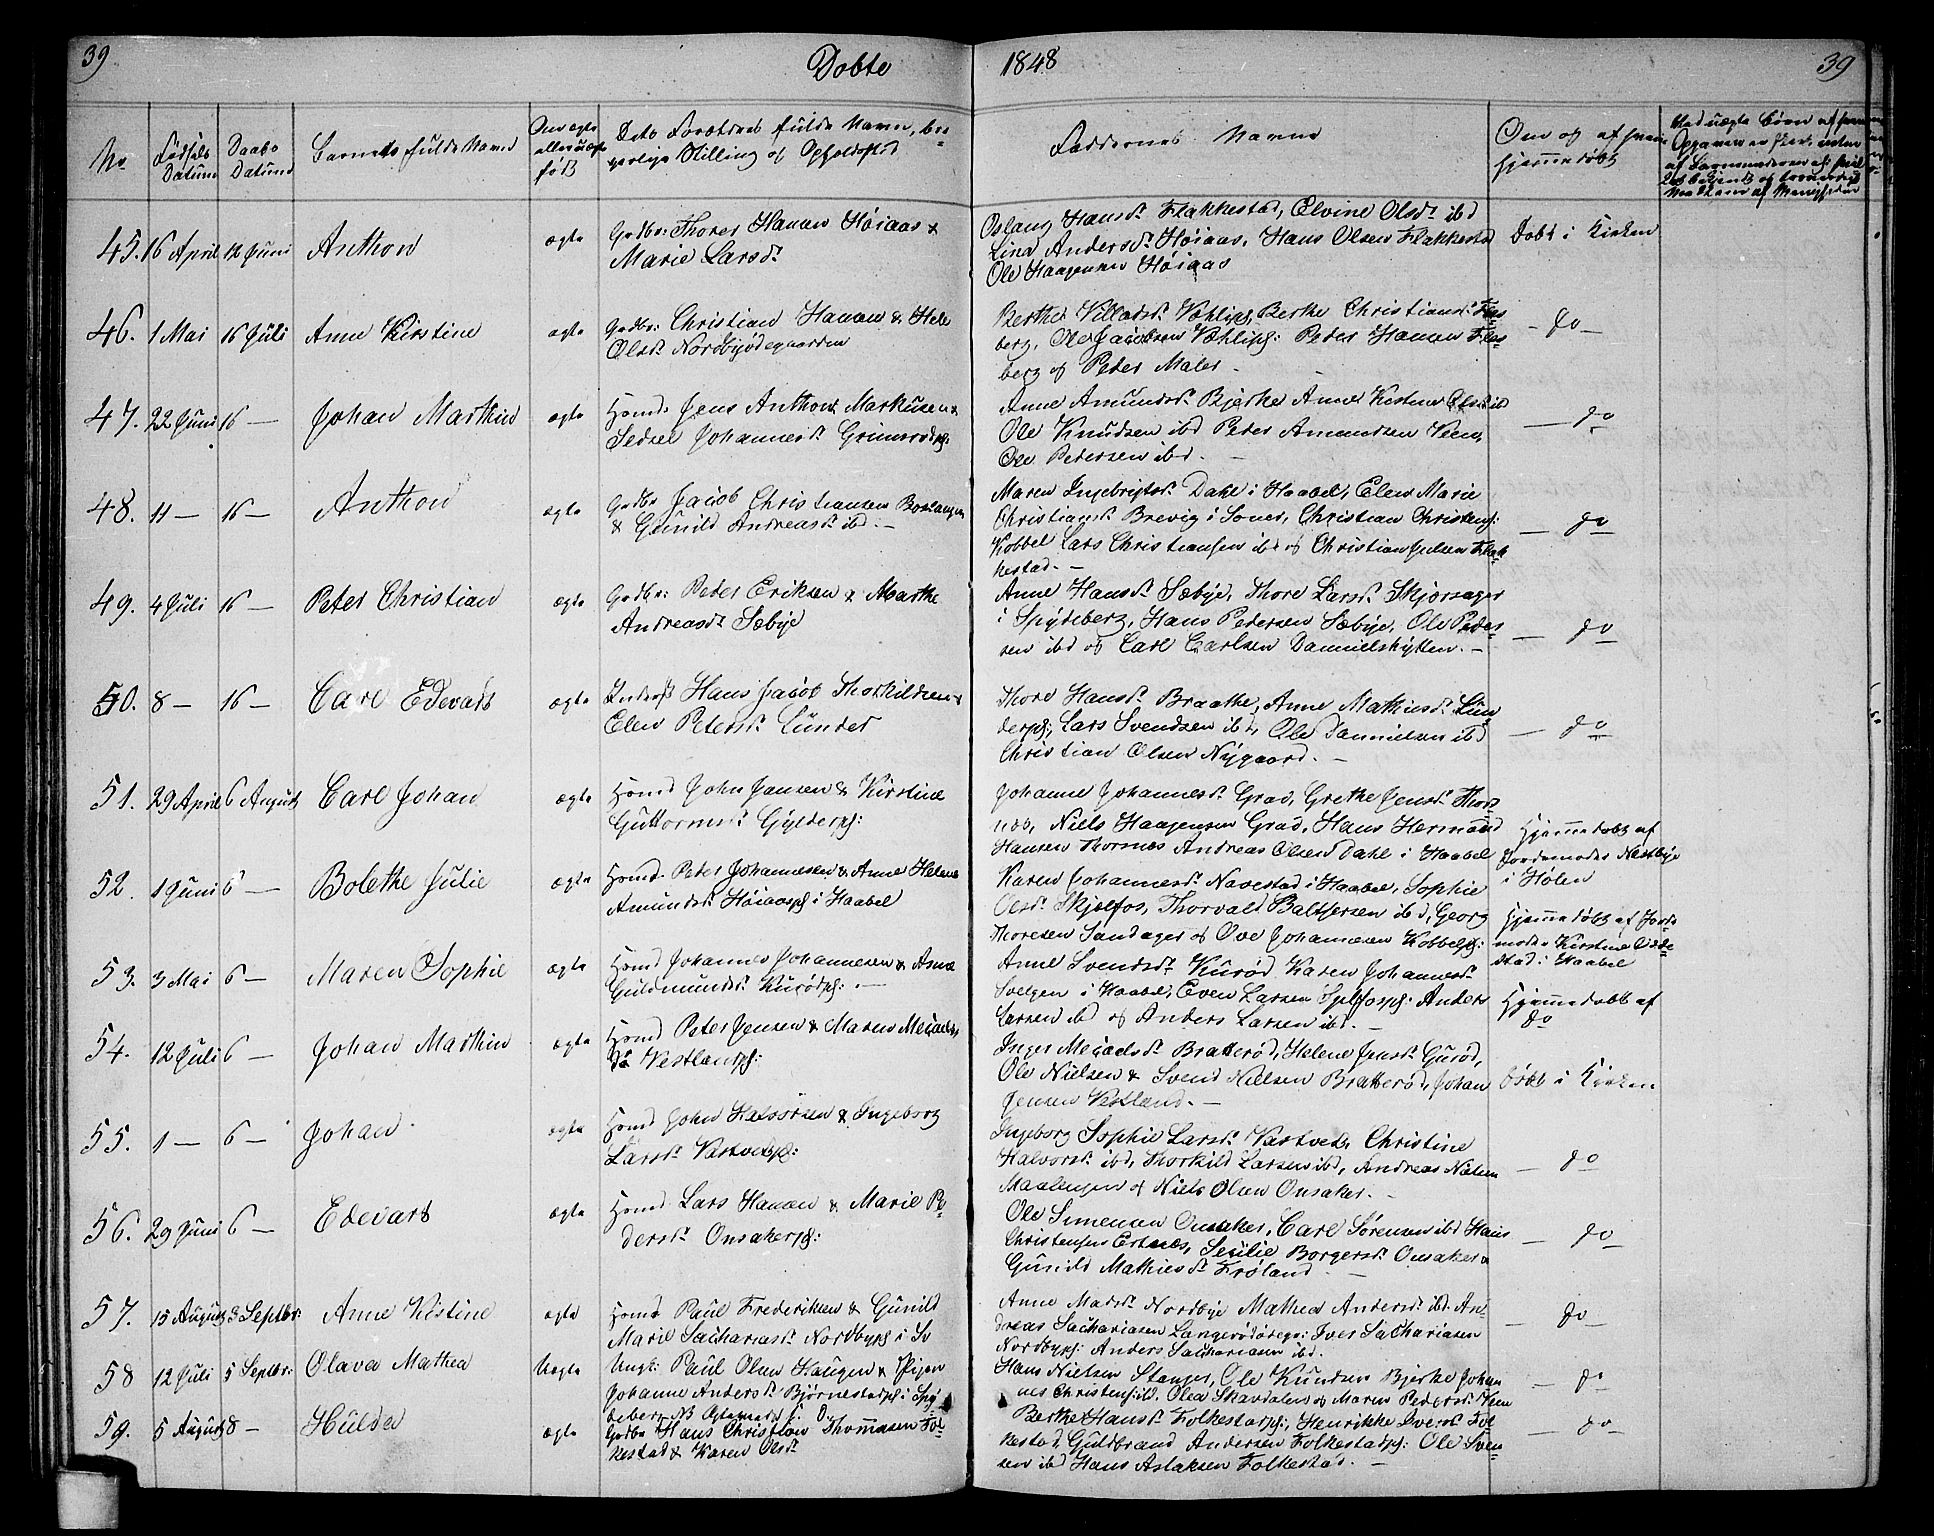 39
Døbte
1848
39
No
Fødsels Datum
Daabs Datum
Barnets fulde Navn
Om ægte eller uægte født
Dets Forældres fulde Navn, borgerlige Stilling og Opholdssted
Faddernes Navne
Om og af hvem hjemmedøbt
45. 16 April 12 Juni Anthon ægte Gadbr: Thorer Hansen Høiaas &
Marie Larsd.
Oslaug Hansd. Flakkestad, Elvine Olsd. ibd
Lina Andersd. Høiaas, Hans Olsen Flakkestad
Ole Haagensen Høiaas
Døbt i Kirken
46. 1 Mai 16 Juli Anne Kirstine ægte Gadbr: Christian Hansen & Hele
Olsd. Nordbyødegaarden
Berthe Villadsd. Vøhlipl, Berthe Christiansd.
berg, Ole Jacobsen Vøhlipl: Peder Hansen
berg og Peder Maler
— do —
47. 22 Juni 16 — Johan Marthin ægte Huusmd. Jens Anthon Markusen &
Sedsel Johannesd. Grimsrødpl:
Anne Amundsd. Bjerke Anne Kistine Olsd ibd
Ole Knudsen ibd Peder Amundsen Veen,
Ole Pedersen ibd. —
— do
48. 11 — 16 — Anthon ægte Gadbr Jacob Christiansen
& Gunild Andreasd. ibd. —
Maren Ingebrigtsd. Dahl i Haabøl, Elen Marie
Christiansd. Brevig i Soner, Christian Christensen
Kobbel Lars Christiansen ibd og Christian Julsen Flak-
kestad. —
— do
49. 4 Juli 16 — Peter Christian ægte Gadbr: Peder Eriksen & Marthe
Andreasd. Sæbye
Anne Hansd. Sæbye, Thore Larsd. Skjørsager
i Spydeberg, Hans Pedersen Sæbye, Ole Peder-
sen ibd og Carl Carlsen Dannielshytten. —
— do
50. 8 — 16 — Carl Edevard ægte Hans Jacob Thorkildsen &
Elen Petersd. Lunder
Thore Hansd. Braathe, Anne Mathisd. Lun-
derpl; Lars Svendsen ibd, Ole Dannielsen ibd
Christian Olsen Nygaard. —
— do
51. 29 April 6 August Carl Johan ægte Huusmd John Jansen & Kirstine
Guttormsd. Gylderpl:
Johanne Johannesd. Grav, Grethe Jensd. Thor-
næs, Niels Haagensen Grav, Hans Herman
Hansen Thornæs Andreas Olsen Dahl i Haabøl
Hjemmedøbt af
Jordemoder Næsbye
i Hølen
52. 1 Juni 6 — Bolethe Julie ægte Huusmd. Peder Johannesen & Anne Helene
Amundsd. Høiaaspl i Haabøl
Karen Johannesd. Navestad i Haabøl, Sophie
Olsd. Skjølfos, Thorvald Balthersen ibd, Georg
Thoresen Sandager og Ove Johannesen Kobbelpl:
Hjemmedøbt af Jorde-
moder Kirstine
stad i Haabøl
53. 3 Mai 6 — Maren Sophie ægte Huusmd Johannes Johannesen & Anne
Guldmundsd. Kurødpl: —
Anne Svendsd. Kurød, Karen Johannesd.
Svelgen i Haabøl, Even Larsen Anders
Larsen ibd og Anders Larsen ibd. —
Hjemmedøbt af
do
54. 12 Juli 6 — Johan Marthin ægte Huusmd Peter Jensen & Maren Micaels-
d. Vestlandpl:
Inger Micaelsd. Bratterød, Helene Jensd. Gurød,
Ole Nielsen & Svend Nielsen Bratterød, Johan
Jensen Vestland. —
Døbt i Kirken
55. 1 — 6 — Johan ægte Huusmd John Halvorsen & Ingeborg
Larsd. Vastvedtpl:
Ingeborg Sophie Larsd. Vastvedt, Christine
Halvorsd. ibd, Thorkild Larsen ibd, Andreas Nielsen
Maalengen og Niels Olsen Onsaker. —
— do
56. 29 Juni 6 — Edevard ægte Huusmd. Lars Hansen & Marie Pe-
dersd. Onsakerpl:
Ole Simensen Onsaker, Carl Sørensen ibd Hans
Christensen Ertnæs, Secilie Borgersd. Onsaker &
Gunild Mathiesd. Frøland —
— do
57. 15 August 3 Septbr: Anne Kistine ægte Huusmd Paul Frederiksen & Gunild
Marie Sachariasd. Nordbypl i
Anne Madsd. Nordbye Mathea Andersd. ibd. An-
dreas Sachariasen Langerødødeg: Iver Sachariasen
Nordbypl: Anders Sachariasen ibd.
— do —
58 12 Juli 5 Septbr: Olava Mathea Uægte Ungk: Paul Olsen Haugen & Pigen
Johanne Andersd. Bjørnestadpl i Spy-
deberg
Hans Nielsen Stanger, Ole Knudsen Bjerke Johan-
nes Christensen ibd, Olea Skavdalen og Maren Pedersd. Veen
— do
59. 5 August 8 — Hulda ægte Gadbr Hans Christian Thommesen Fol-
kestad & Karen Olsd.
Berthe Hansd. Folkestadpl:, Henrikke Iversd. Fol-
kestad, Guldbrand Andersen Folkestadpl: Ole Sven-
sen ibd Hans Aslaksen Folkestad. —
— do